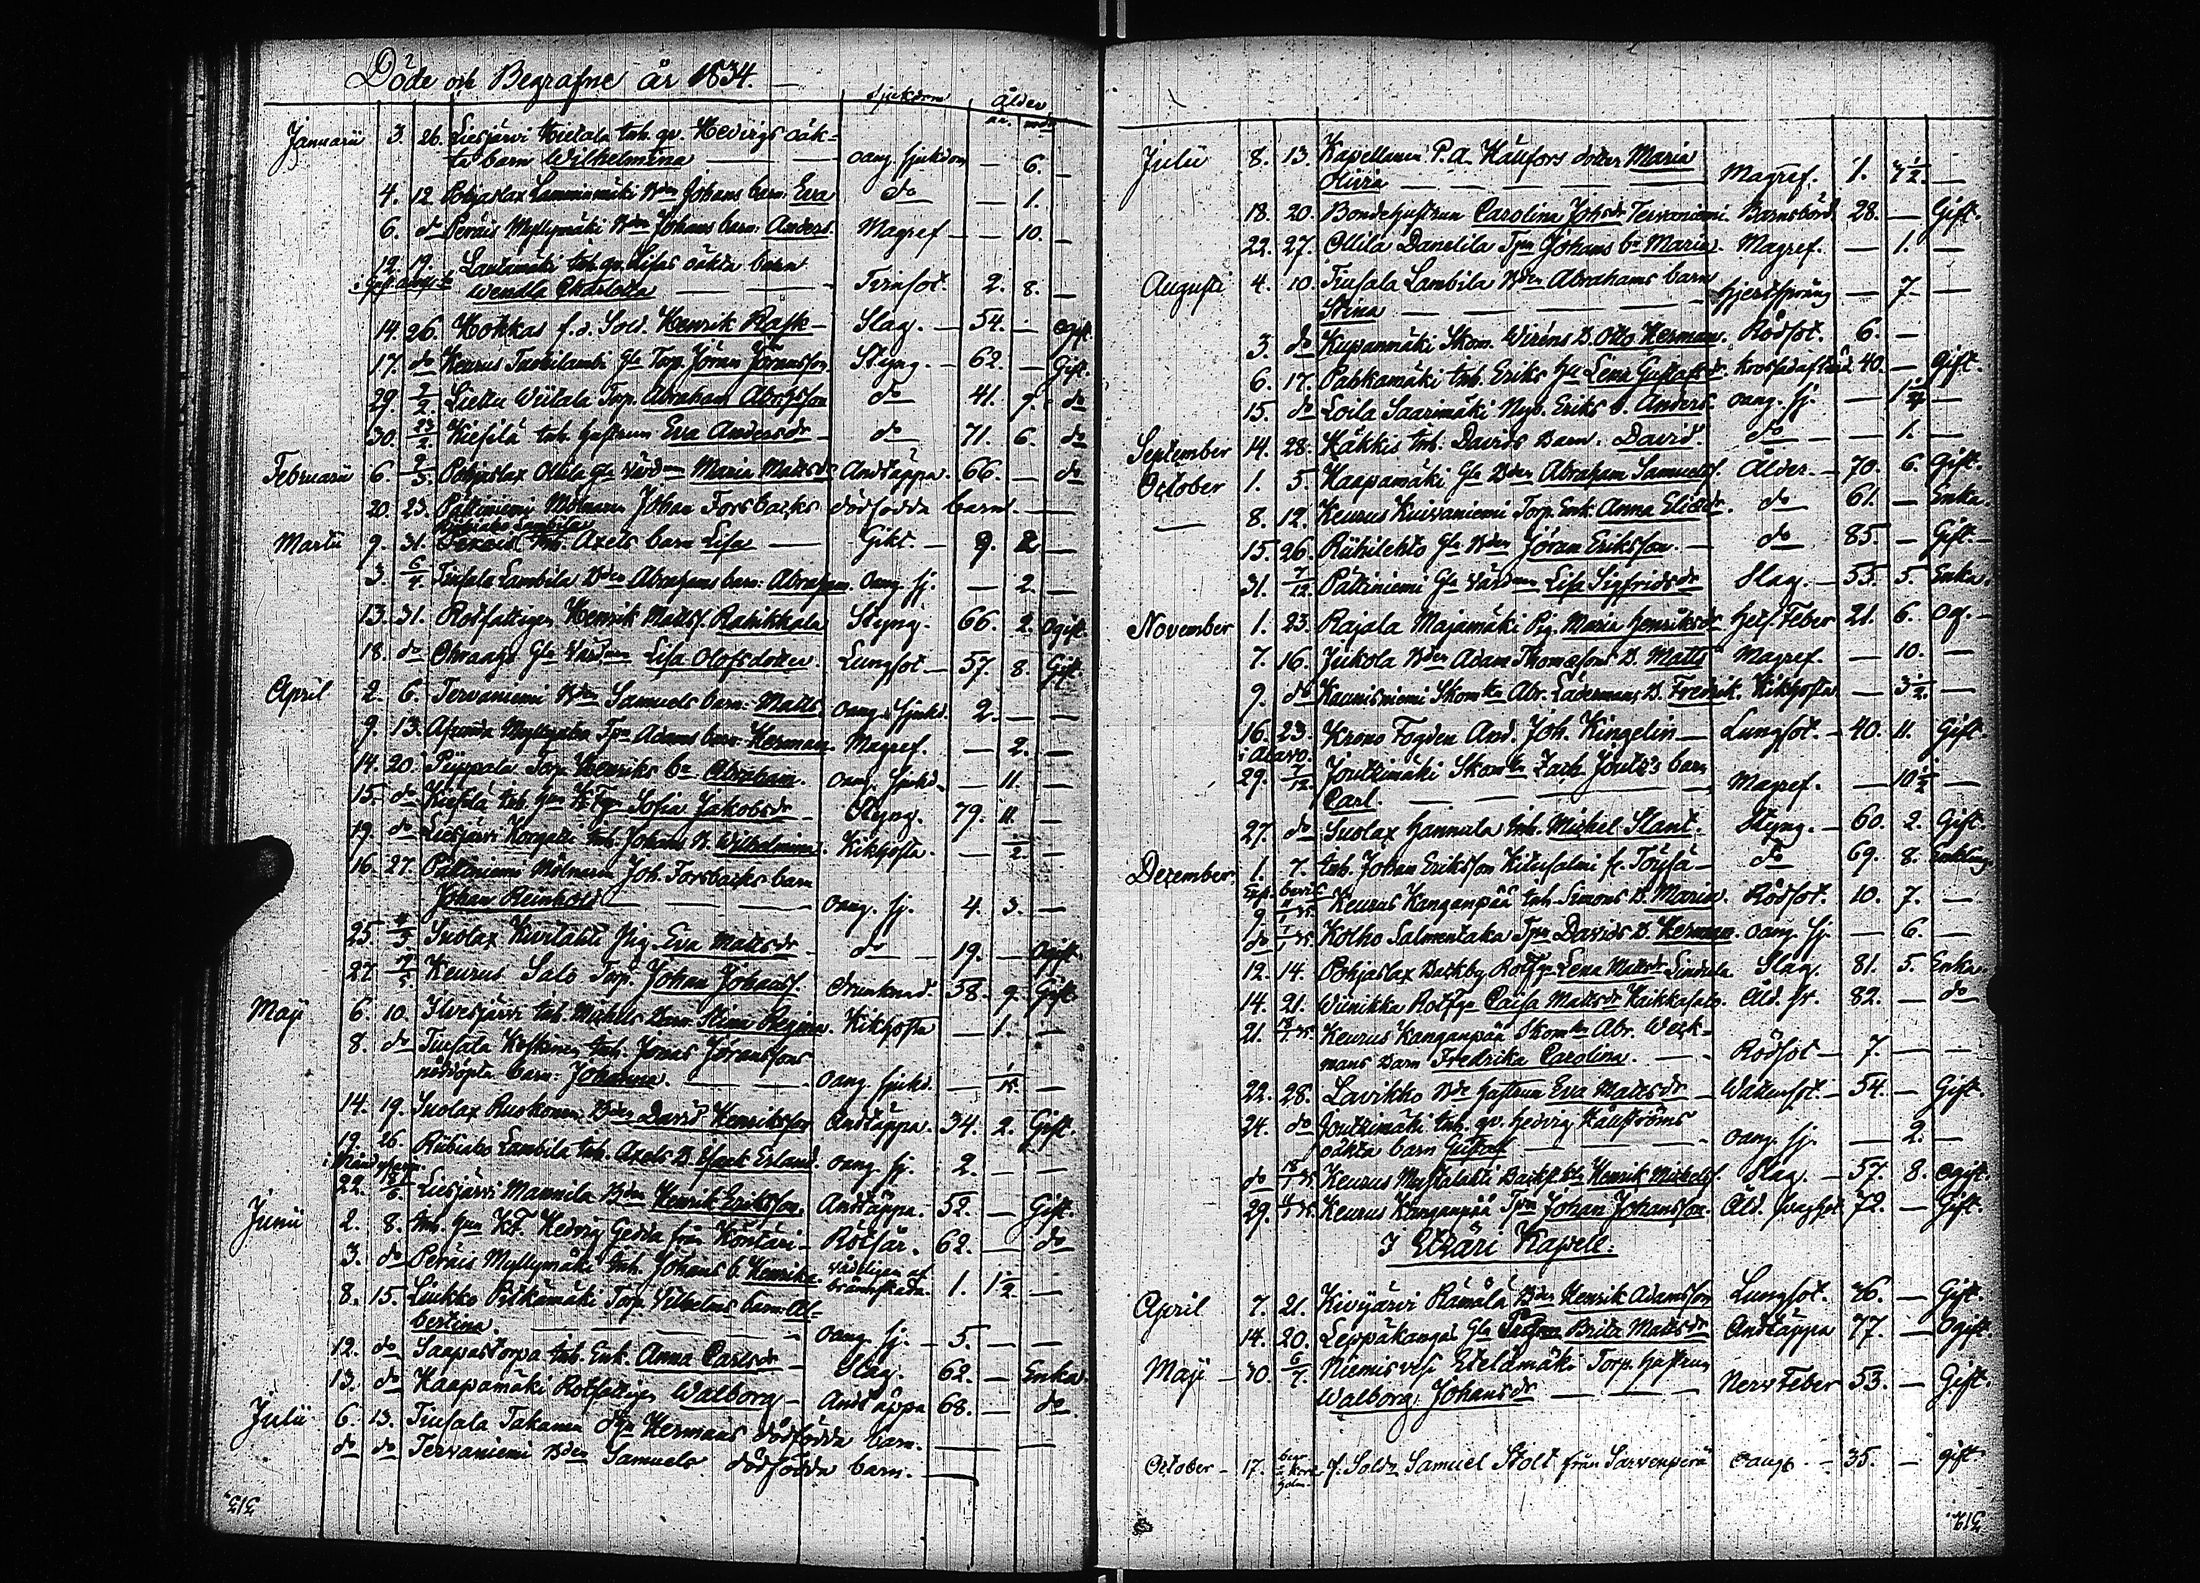 Döde och Begrafne år 1834.
Sjukdom ålder
år. mdr
Januarii 3. 26. Liesjärvi Hietala Inh. qv. Hedvigs oäk-
ta barn Wilhelmina oang. sjukdom — 6. —
4. 12. Pohjaslax Lamminmäki Bdn Johans barn Eva do — 1.
6. do Peräis Myllymäki Bdn Johans barn: Anders Magref — 10. —
12. 19. Lautamäki Inh. qv. Lisas oäkta barn
Wendla Charlotta Tvinsot. 2. 8. —
14. 26. Hokkas f.d. Sold. Henrik Rask Slag. — 54. — Ogift
17. do Keurus Gle Torp. Jöran Jöransson Styng. — 62. — Gift.
29. 2/2 Liettu Wiitala Torp. Abraham Abrahsson do 41. 7. do
30. 23/2 Kiesilä Inh. hustrun Eva Andersdr do 71. 6. do
Februarii 6. 9/3. Pohjaslax Ollila Gla Värdinn Maria Mattsdr Andtäppa. 66. — do
20. 23. Pättiniemi Mölnaren Johan Forsbacks dödfödda barn. —
Riihiaho Lambila
Martii 9. 31. Inh. Axels barn Lisa — Gikt. — 9. 2 —
3. 6/4 Tiusala Lambila Bden Abrahams barn: Abraham oang. sj. — 2. —
13. 31. Rotfattigen Henrik Mattss. Ratikkala Styng. 66. 2. Ogift.
18. do Gla Värdinn Lisa Olofsdotter Lungsot — 57. 8. Gift.
April 2. 6. Tervaniemi Bden Samuels barn: Matts oang. sjukd. 2. — —
9. 13. Asunda Myllyaho Tpn Adams barn Herman Magref. — 2. —
14. 20. Pirppola Torp. Henriks bn Abraham. oang. sjukd. — 11. —
15. do Kiesilä Inh. Sofia Jakobsdr Styng. 79. 11. —
19. do Liesjärvi Korpela Inh. Johans B. Wilhelmina. Kikhosta. — 1/2. —
16. 27. Pättiniemi Mölnaren Joh. Forsbacks barn
Johan Reinhold oang. sj. 4. 3. —
25 4/5. Suolax Kurtahti Pig. Eva Mattsdr do — 19. — Ogift
27. 7/5 Keurus Salo Torp. Johan Johanss. Drunknad. 58. 9. Gift
Maji 6. 10. Ilvesjärvi Inh. Michels Barn Stina Regina Kikhosta — 1. —
8. do Tiusala Koskinen Inh. Jonas Jöranssons
nöddöpta barn: Johanna. oang. sjukd. — 1/15. —
14. 19. Suolax Ruokonen Bden David Henriksson Andtäppa. 34. 2. Gift.
19. 26. Riihiaho Lambila Inh. Axels B. Isack Erland. oang. sj. 2. — —
22. Liesjärvi Mannila Bden Henrik Eriksson. Andtäppa. 52. — Gift.
Junii 2. 8. Inh. Hedvig Gedda från Köntäri — Rötsår. 62. — do
3. do Peräis Myllymäki Inh. Johans b. Henrika vådeligen af
brännskada. 1. 1 1/2 —
8. 15. Liukko Pitkämäki Torp. Wilhelms barn: Al-
bertina oang. sj. — 5. — —
12. do Saapastorpa Inh. Enk. Anna Carlsdr Slag. 62. — Enka
13. do Haapamäki Rotfattigen Walborg — Andtäppa 68. — do
Julii 6. 13. Tiusala Takanen Hermans dödfödda barn. — —
do do Tervaniemi Bden Samuels dödfödda barn. —
313.
Julii 8. 13. Kapellanen P. A. Källfors dotter Maria
Olivia Magref. 1. 7 1/2. —
18. 20. Bondehustrun Carolina Johsdr Tervaniemi Barnsbörd 28. — Gift.
22. 27. Ollila Danelila Tpn Johans bn Maria. Magref. — 1. —
Augusti 4. 10. Tiusala Lambila Bden Abrahams barn
Stina Hjertsprång — 7. —
3. do Kupanmäki Skom. Wiréns B. Otto Herman. Rödsot. 6. —
6. 17. Pahkamäki Inh. Eriks Hu Lena Gustafsdr. 40. — Gift.
15. do Loila Saarimäki Nyb. Eriks b. Anders. oang. sj. — 1 1/4 —
September 14. 28. Häkkis Inh: Davids Barn: David. do — 1. —
October 1. 5. Haapamäki Gle Bden Abraham Samuelss. Ålder. — 70. 6. Gift.
8. 12. Keurus Kuivaniemi Torp. Enk. Anna Eliædr. do 61. — Enka.
15. 26. Riihilehto Gle Bden Jöran Eriksson. — do 85. — Gift —
31. 7/12 Pättiniemi Gla Värdinn Lisa Sigfridsdr Slag. — 55. 5. Enka.
November 1. 23. Rajala Majamäki Pig. Maria Henriksdr Hets Feber 21. 6. Og. —
7. 16. Jukola Bden Adam Thomassons B. Matts Magref. — 10. —
9. do Kaunisniemi Skom. Abr. Lädermans B. Fredrik. Kikhosta — 3 1/2. —
16. 23. Krono Fogden And. Joh. Kingelin — Lungsot. — 40. 11. Gift.
i Alavo.
29. 7/12 Joutzimäki Skom. Zach. Joutz's barn
Carl. Magref. — 10 1/2 —
27. do Suolax Hannula Inh. Michel Slant. Styng. — 60. 2. Gift.
Dezember 1. 7. Inh. Johan Eriksson Kitusalmi fr. Töysä — do 69. 8. Enkling
9. Keurus Kanganpää Inh. Simons B. Maria. Rödsot. 10. 7. —
do Kolho Salmentaka Tpn Davids B. Herman. oang. sj. — 6. —
12. 14. Pohjaslax Backby Rotfg. Lena Mattsdr Lindula Slag. 81. 5. Enka.
14. 21. Wiinikka Rotfg. Caisa Mattsdr Åld. sv. 82. — do
21. Keurus Kanganpää Skom. Abr. Weck-
mans Barn Fredrika Carolina. — Rödsot — 7. — —
22. 28. Lavikko Bde hustrun Eva Mattsdr — Wattusot. — 54. — Gift.
24. do Joutzimäki Inh. qv. Hedvig Källströms
oäkta barn Gustaf oang. sj. — 2. —
do Keurus Henrik Michelss. Slag. — 57. 8. Ogift.
29. Keurus Kanganpää Tpn Johan Johansson. Åld. svaghet 72. — Gift.
I Etzäri Kapell.
April 7. 21. Kivijärvi Rämälä Bden Henrik Adamsson Lungsot. 76. — Gift.
14. 20. Leppäkangas Gla Brita Mattsdr Andtäppa 77. — Ogift.
Maji — 30. 6/7. Niemisvesi Etelämäki Torp. hustrun
Walborg Johansdr Nerv Feber 53. — Gift.
October — 17. f. Soldn Samuel Stolt från Sarvenperä oangb. — 35. — gift.
312.